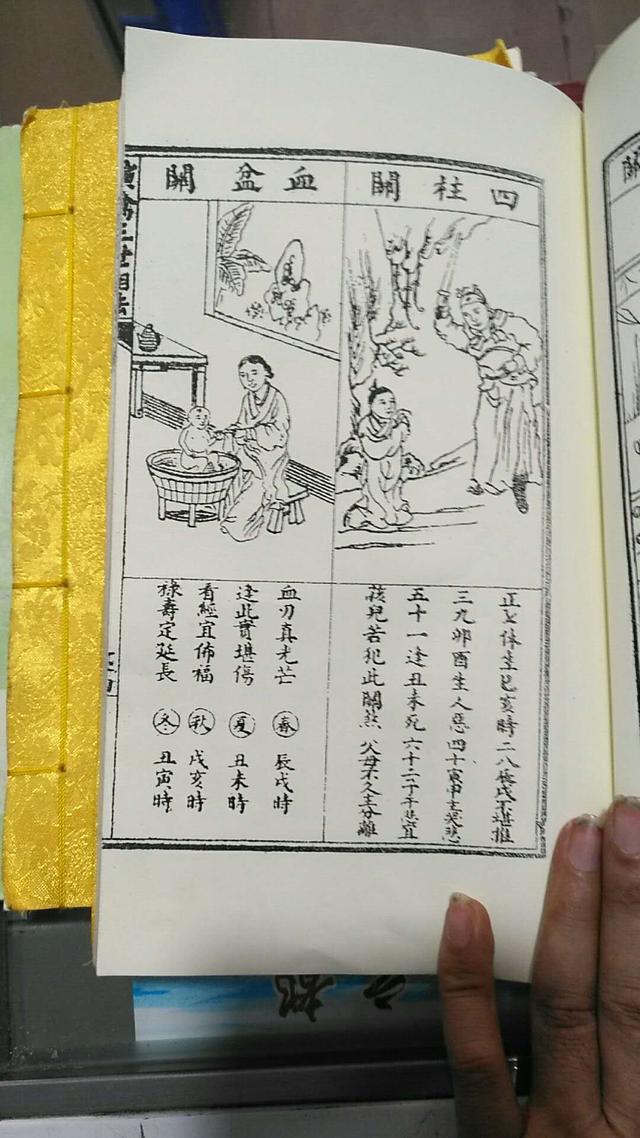 四柱關
正七休生巳亥時二八辰戌不堪推
三九卯酉生人惡四十寅申主哭悲
五十一逢丑未死六十二子午悲宜
孩兒若犯此關煞 父母不久主分離
血盆關
血刃真光芒 春 辰戌時
逢此實堪傷 夏 丑未時
看經宜佈福 秋 戌亥時
祿壽定延長 冬 丑寅時
演禽三世相法
關